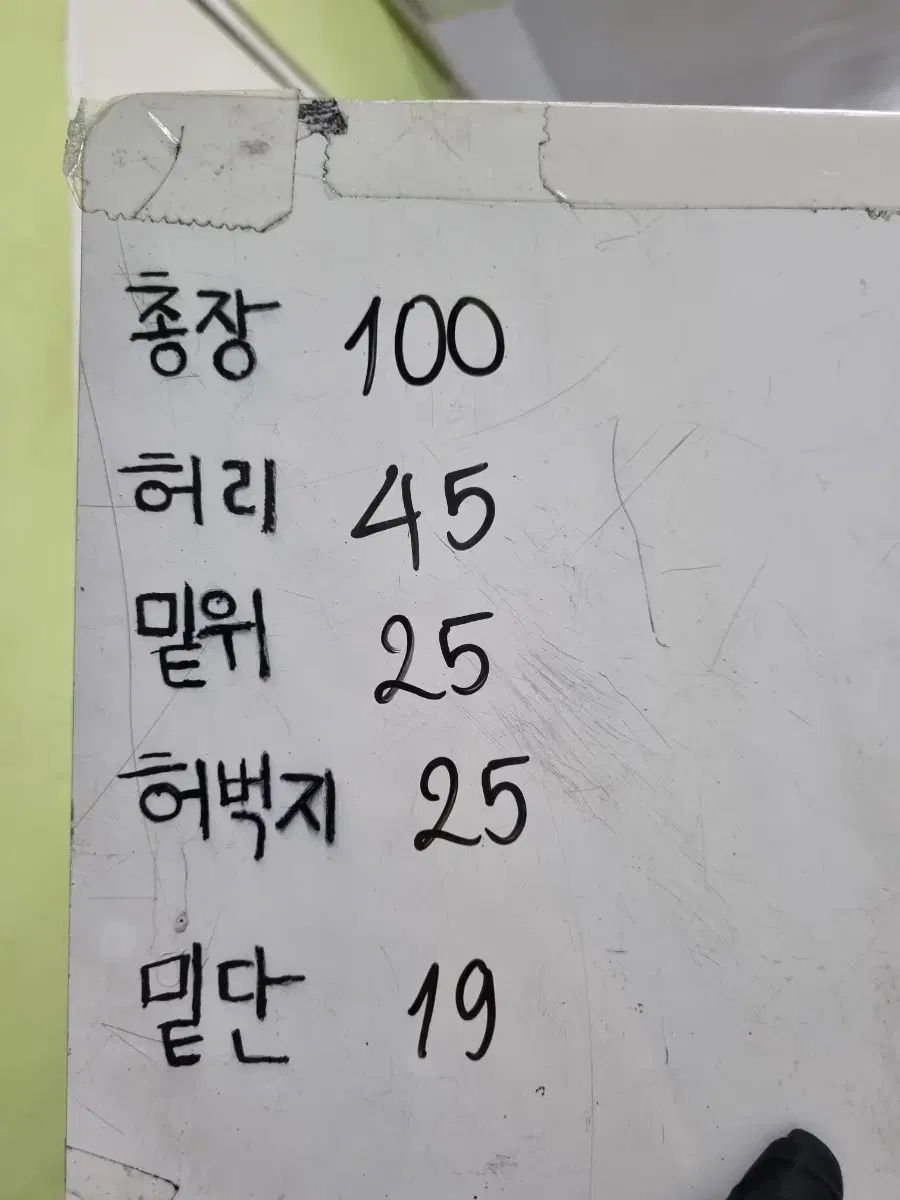 총장 100
허리 45
밑위 25
허벅지 25
밑단 19